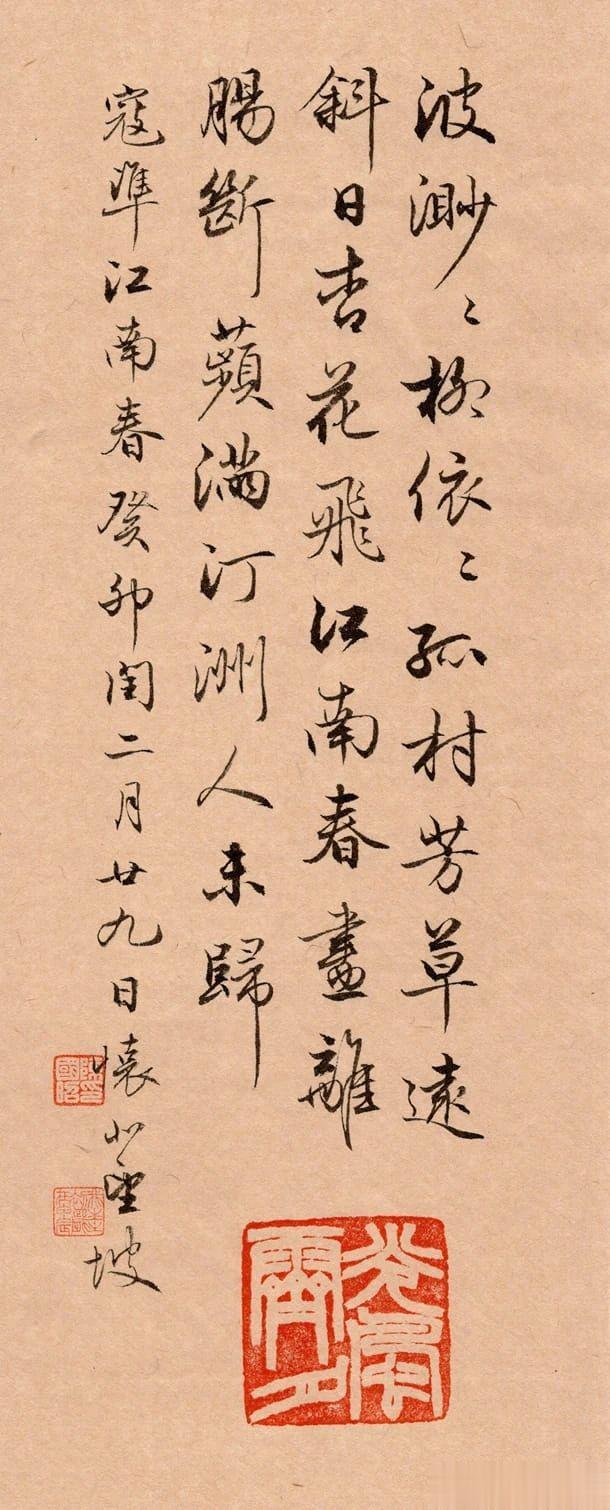 波渺〻柳依〻孤村芳草遠
斜日杏花飛江南春盡離
腸斷蘋滿汀洲人未歸
寇準江南春癸卯閏二月廿九日懷坡
光風霽月